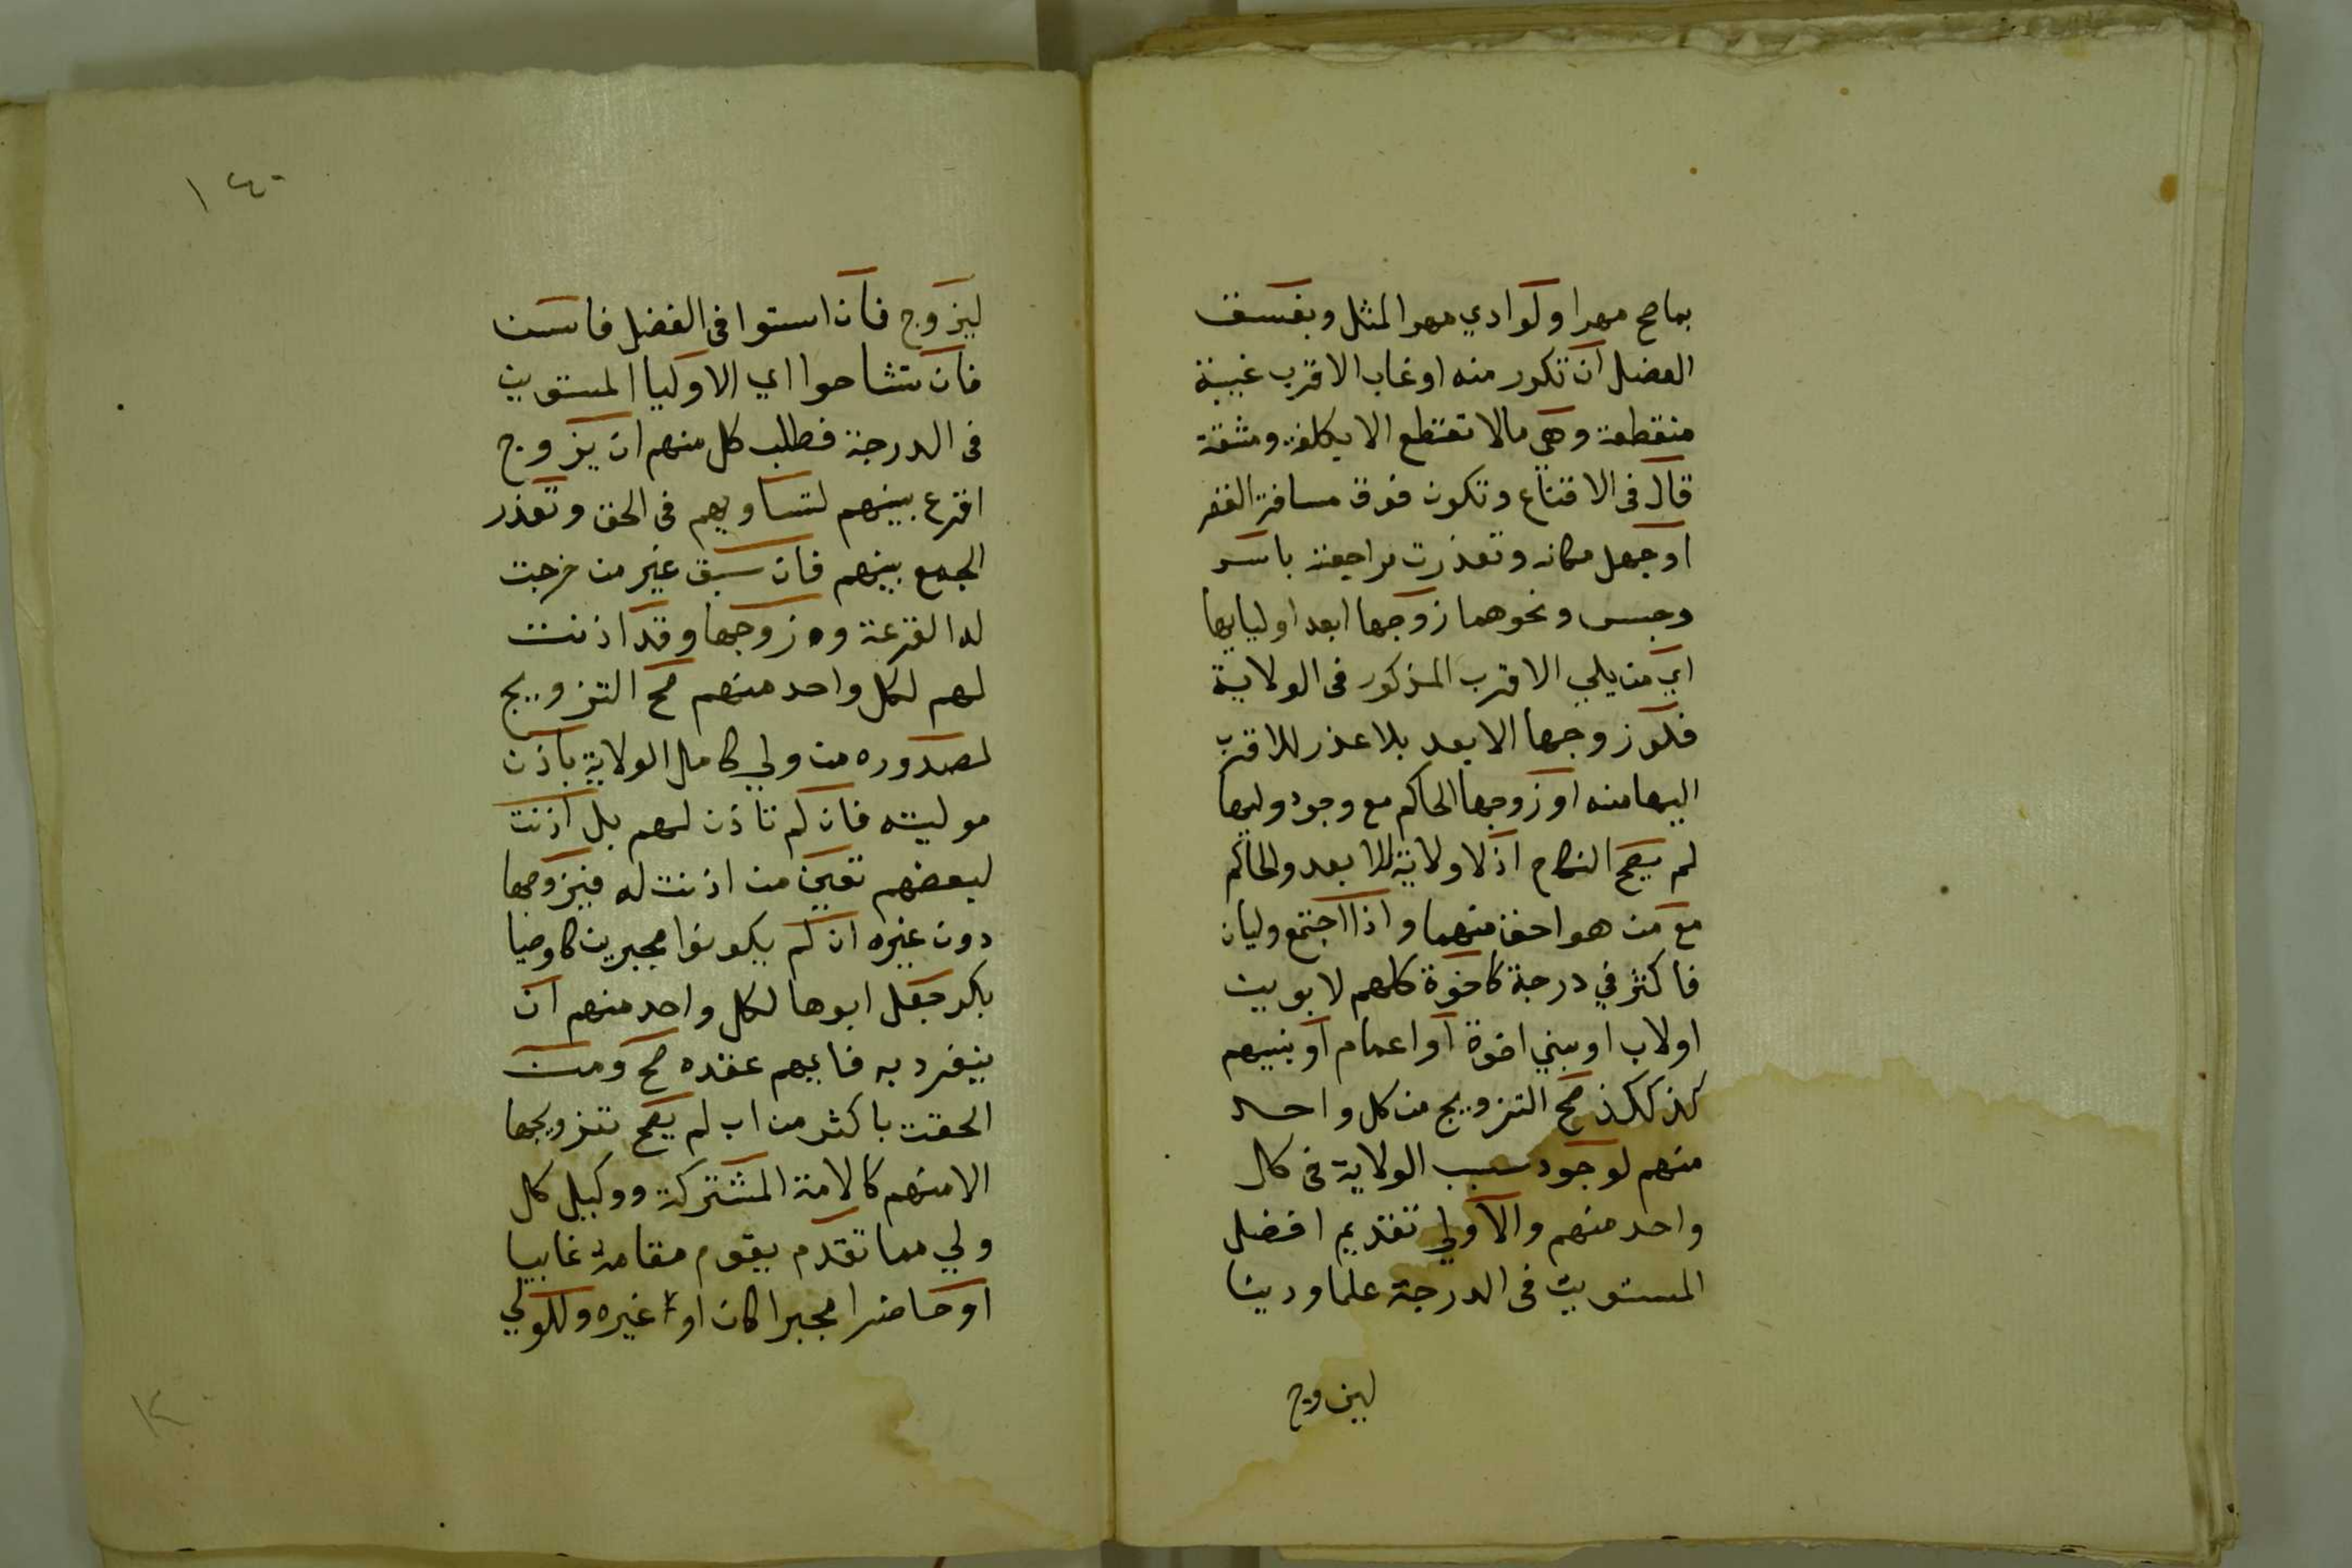 بما صح مهرا ولو ادي مهر المثل وبفسق
العضل ان تكرر منه او غاب الاقرب غيبة
منقطعة وهي مالا تقتطع الا بكلفة ومشقة
قال في الاقناع وتكون فوق مسافة القصر
او جهل مكانه وتعذرت مراجعته باسر
وحبس ونحوهما زوجها ابعد اوليايها
اي من يلي الاقرب المذكور في الولاية
فلو زوجها الابعد بلا عذر للاقرب
اليها منه او زوجها الحاكم مع وجود وليها
لم يصح النكاح اذ لا ولاية للابعد والحاكم
مع من هو احق منهما واذا اجتمع وليان
فاكثر في درجة كاخوة كلهم لابوين
او لاب او بني اخوة او اعمام او بنيهم
كذلكذ صح التزويج من كل واحد
منهم لوجود سبب الولاية في كل
واحد منهم والاولي تقديم افضل
المستويين في الدرجة علما ودينا
ليزوج
١٤٠
ليزوج فان استووا في الفضل فاسن
فان تشاحوا اي الاوليا المستوين
في الدرجة فطلب كل منهم ان يزوج
اقرع بينهم لتساويهم في الحق وتعذر
الجمع بينهم فان سبق غير من خرجت
له القرعة وزوجها وقد اذنت
لهم لكل واحد منهم صح التزويج
لصدوره من ولي كامل الولاية باذن
موليته فان لم تاذن لهم بل اذنت
لبعضهم تعين من اذنت له فيزوجها
دون غيره ان لم يكونوا مجبرين كاوصيا
بكر جعل ابوها لكل واحد منهم ان
ينفرد به فايهم عقده صح ومن
الحقت باكثر من اب لم يصح تزويجها
الا منهم كالامة المشتركة ووكيل كل
ولي مما تقدم يقوم مقامه غايبا
او حاضرا مجبرا كان او غيره وللولي